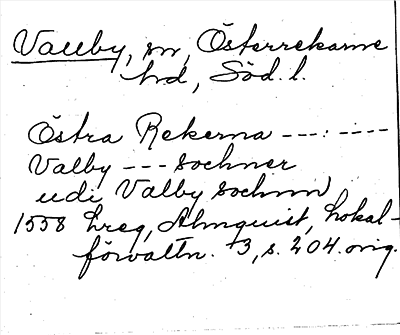 Vallby, sn, Österrekarne
hd, Söd. l.
Östra Rekerna ---:----
Valby --- sochner
udi Valby sochnn
1558 hreg, Almquist, Lokal-
förvaltn. 3, s. 204. orig.